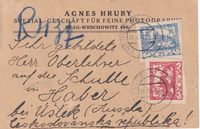 AGNES HRUBY
SPEZIAL-GESCHÄFT FÜR FEINE PHOTOGRAPHIE
PRAG-WRSCHOWITZ
Sehr gebildete
Herr Oberlehrer
auf der Schulle
in Haber
bei Úštěk (Auscha)
Československa republika!